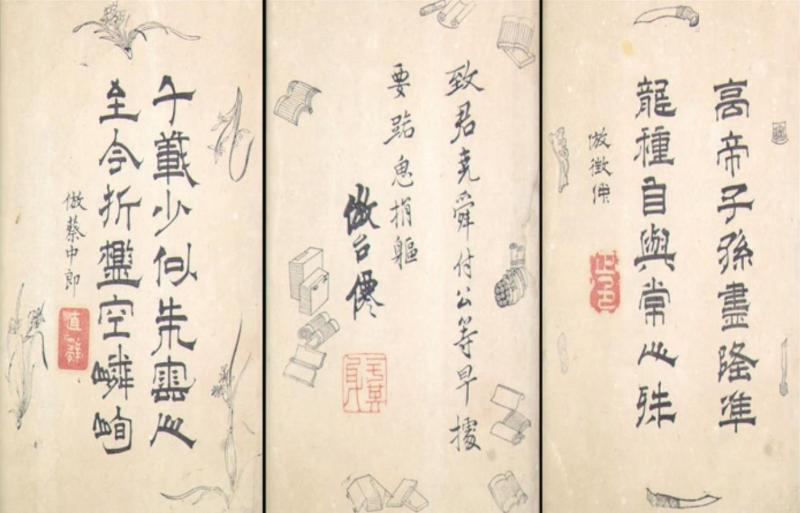 高帝子孫盡隆準
龍種自與常人殊
倣徵
正色
致君堯舜付公等早據
要路思捐軀
倣台僊
千載少似朱雲人
至今折檻空嶙峋
倣蔡中郎
直辭